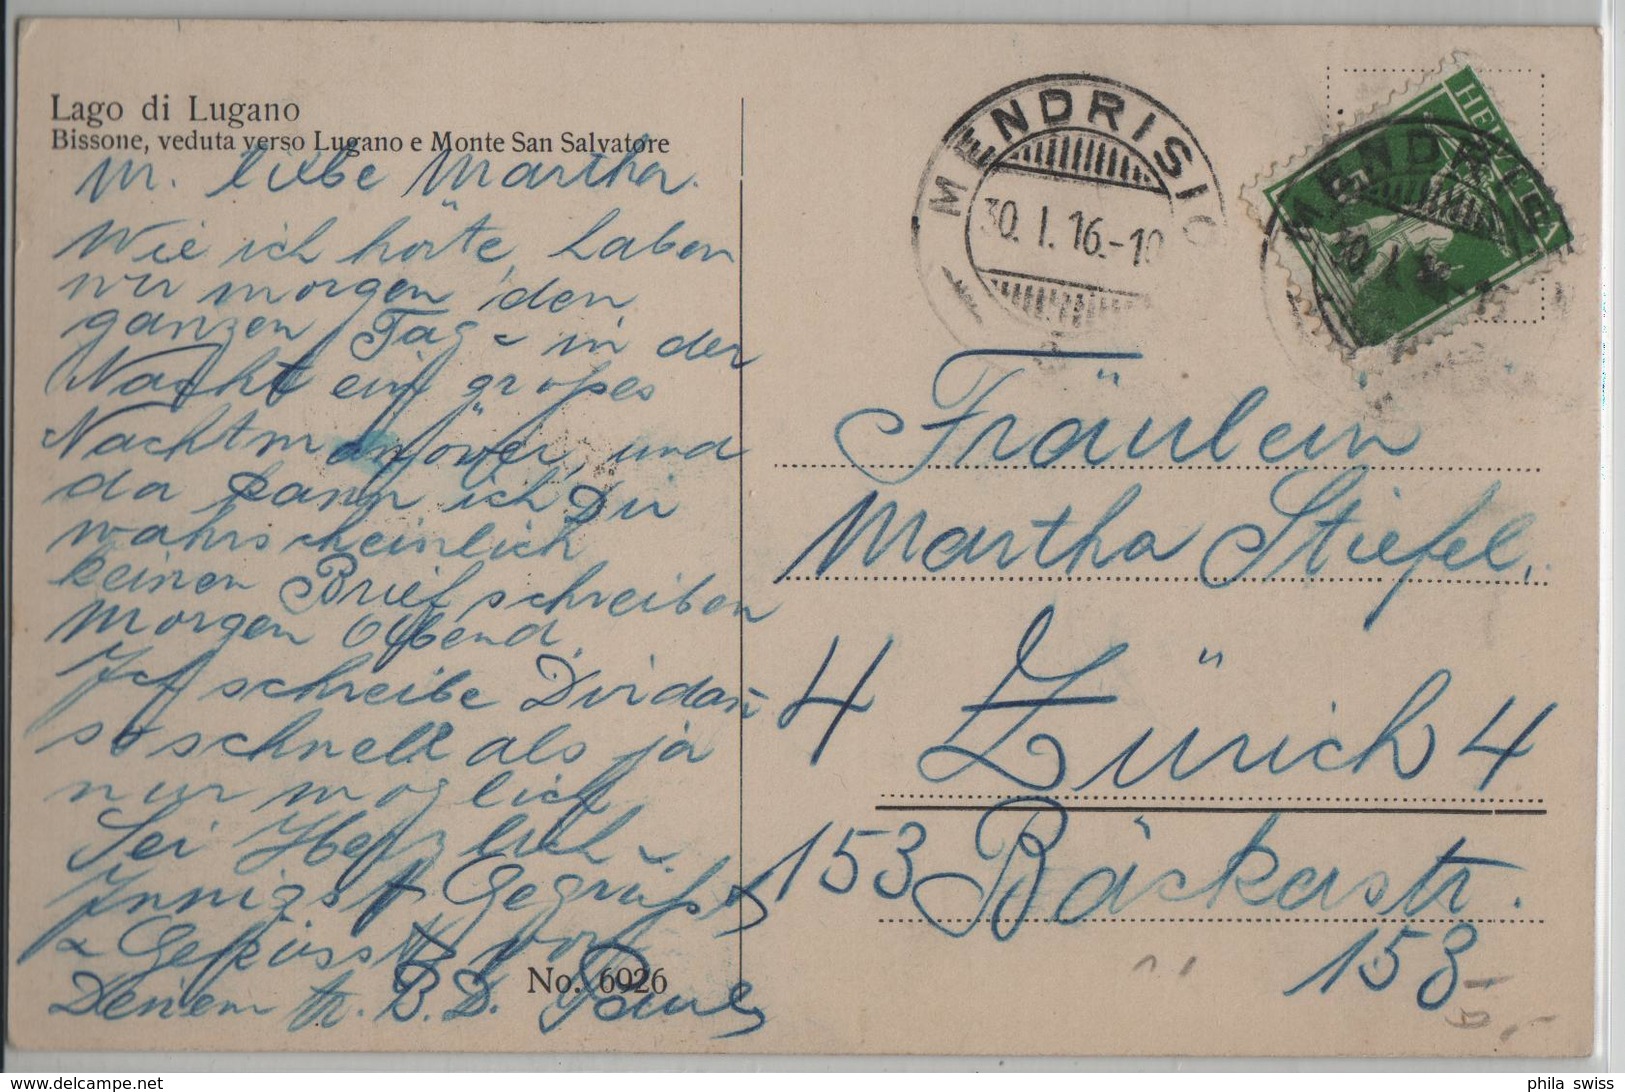 Lago di Lugano
Bissone, veduta verso Lugano e Monte San Salvatore
M. liebe Martha.
Wie ich hörte, haben
wir morgen den
ganzen Tag - in der
Nacht ein großes
Nachtmanöver, und
da kann ich Dir
wahrscheinlich
keinen Brief schreiben
Morgen Abend.
Ich schreibe Dir dan̄
so schnell als ja
nur möglich
Sei Herzlich -
Innigst Gegrüßt
& Geküsst von
Deinem tr. B. D. Paul
No. 6926
MENDRISIO
30. I. 16.-10
HELVETIA
5
MENDRISIO
30. I. 16.
Fräulein
Martha Stiefel,
4 Zürich 4
153 Bäckerstr.
153
phila_swiss